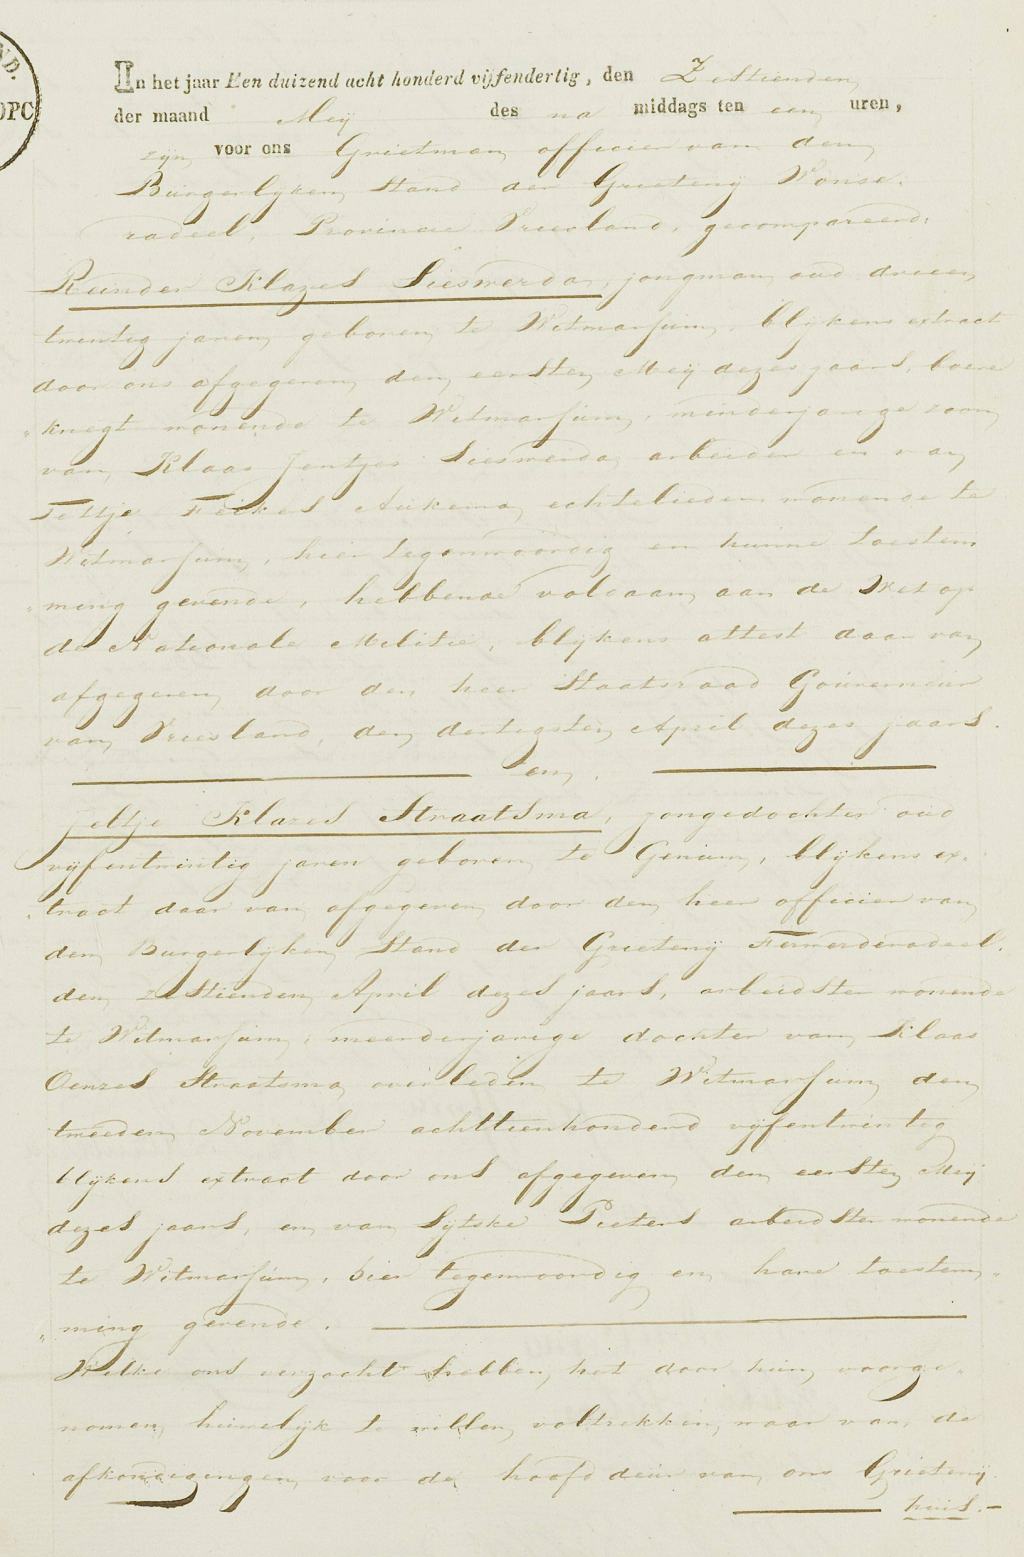 ND.
OPC
In het jaar Een duizend acht honderd vijfendertig, den Zestienden
der maand Meij des na middags ten een uren,
zijn voor ons Grietman officier van den
Burgerlijken Stand der Grietenij Wonse-
radeel, Provincie Vriesland, gecompareerd:
Reinder Klazes Sieswerda, jongman oud drieen
twintig jaren geboren te Witmarsum, blijkens extract
door ons afgegeven den eersten Meij dezes jaars, boere
„knegt wonende te Witmarsum, minderjarige zoon
van Klaas Jentjes Sieswerda arbeider en van
Tettje Feikes Aukema echtelieden wonende te
Witmarsum, hier tegenwoordig en hunne toestem
„ming gevende, hebbende voldaan aan de Wet op
de Nationale Militie, blijkens attest daar van
afgegeven door den heer Staatsraad Gouverneur
van Vriesland, den dertigsten April dezes jaars.
en,
Jeltje Klazes Straatsma, jongedochter oud
vijfentwintig jaren geboren te Genum, blijkens ex-
„tract daar van afgegeven door den heer officier van
den Burgerlijken Stand der Grietenij Ferwerderadeel.
den zestienden April dezes jaars, arbeidster wonende
te Witmarsum, meerderjarige dochter van Klaas
Oenzes Straatsma overleden te Witmarsum den
tweeden November achttienhonderd vijfentwintig
blijkens extract door ons afgegeven den eersten Meij
dezes jaars, en van Sijtske Pieters arbeidster wonende
te Witmarsum, hier tegenwoordig en hare toestem„
„ming gevende.
Welke ons verzocht hebben het door hun voorge„
nomen huwelijk te willen voltrekken, waar van de
afkondigingen voor de hoofd deur van ons Grietenij
huis.-